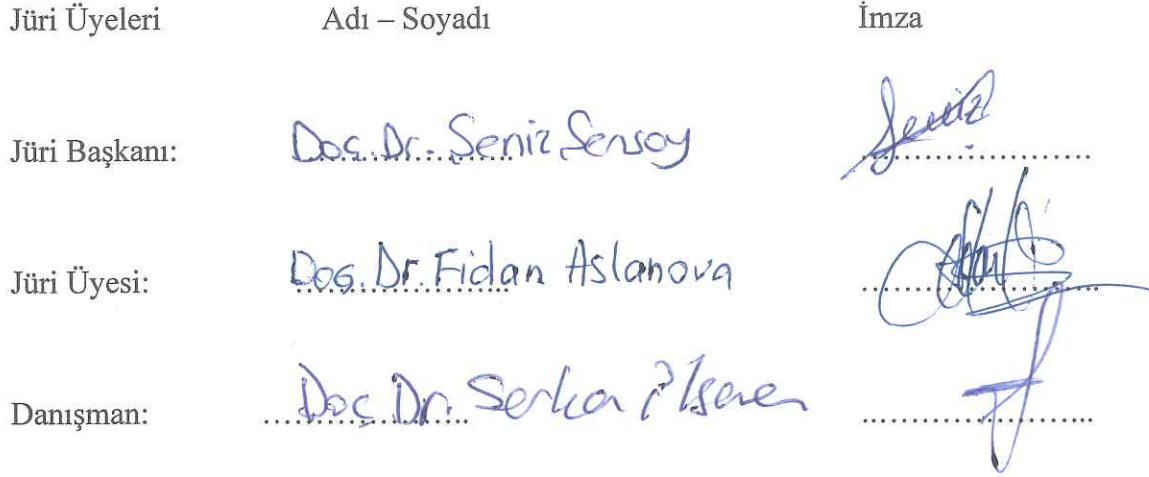 Jüri Üyeleri Adı – Soyadı İmza
Jüri Başkanı: Doç. Dr. Şeniz Şensoy
Jüri Üyesi: Doç. Dr. Fidan Aslanova
Danışman: Doç. Dr.